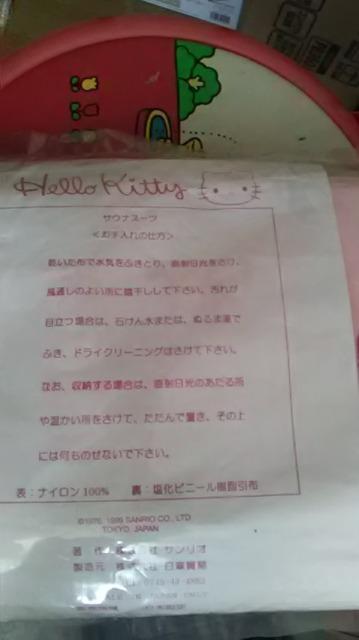 Hello Kitty
サウナスーツ
<お手入れの仕方>
乾いた布で水気をふきとり、直射日光をさけ、
風通しのよい所に陰干しして下さい。汚れが
目立つ場合は、石けん水または、ぬるま湯で
ふき、ドライクリーニングはさけて下さい。
なお、収納する場合は、直射日光のあたる所
や温かい所をさけて、たたんで置き、その上
には何ものせないで下さい。
表：ナイロン100% 裏：塩化ビニール樹脂引布
©1976, 1999 SANRIO CO., LTD.
TOKYO, JAPAN
著作 株式会社 サンリオ
製造元 株式会社 白華貿易